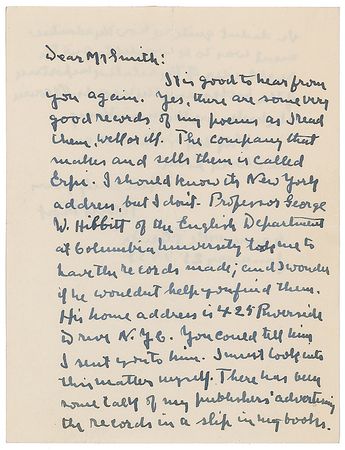 Dear Mr Smith:
It is good to hear from
you again. Yes, there are some very
good records of my poems as I read
them, well or ill. The company that
makes and sells them is called
Erpi. I should know its New York
address, but I don't. Professor George
W. Hibbitt of the English Department
at Columbia University to
have the records made; and I wonder
if he wouldn't help you find them.
His home address is 425 Riverside
Drive N.Y.C. You could tell him
I sent you to him. I must look into
this matter myself. There has been
some talk of my publishers' advertising
the records in a slip in my books.